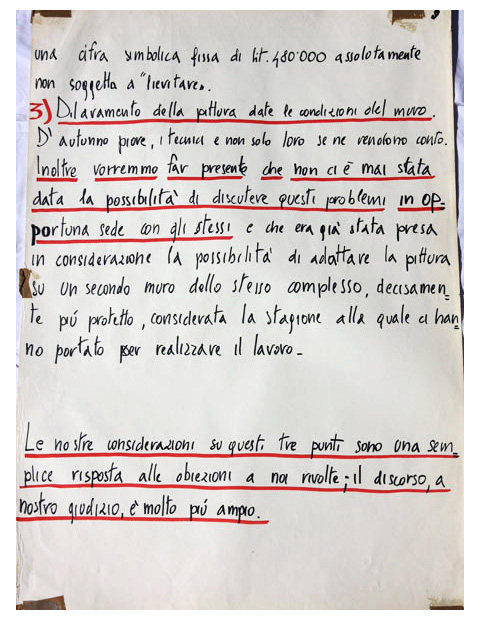 una cifra simbolica fissa di Lit. 480.000 assolutamente
non soggetta a "lievitare".
3) Dilavamento della pittura date le condizioni del muro.
D'autunno piove, i tecnici e non solo loro se ne rendono conto.
Inoltre vorremmo far presente che non ci è mai stata
data la possibilità di discutere questi problemi in op-
portuna sede con gli stessi e che era già stata presa
in considerazione la possibilità di adattare la pittura
su un secondo muro dello stesso complesso, decisamen-
te più protetto, considerata la stagione alla quale ci han-
no portato per realizzare il lavoro -
Le nostre considerazioni su questi tre punti sono una sem-
plice risposta alle obiezioni a noi rivolte; il discorso, a
nostro giudizio, è molto più ampio.